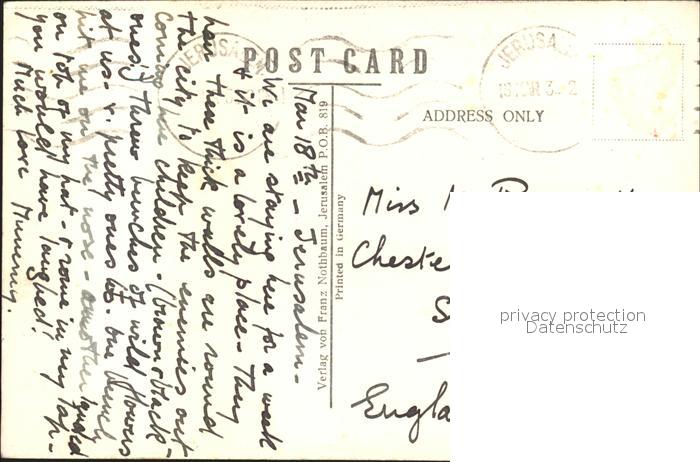 POST CARD
JERUSALEM
JERUSA
ADDRESS ONLY
Mar 18th - Jerusalem -
We are staying here for a week
& it is a lovely place - They
have thick walls are round
the city to keep the enemies out -
Coming children - (brown & black
ones) threw bunches of wild flowers
at us - v. pretty ones too - One bunch
hit me on the nose - another landed
on top of my hat - & some in my lap -
you would have laughed!
Much love Mummy.
Verlag von Franz Nothbaum, Jerusalem P.O.B. 819
Printed in Germany
Miss
Cheste
S
Engla
privacy protection
Datenschutz